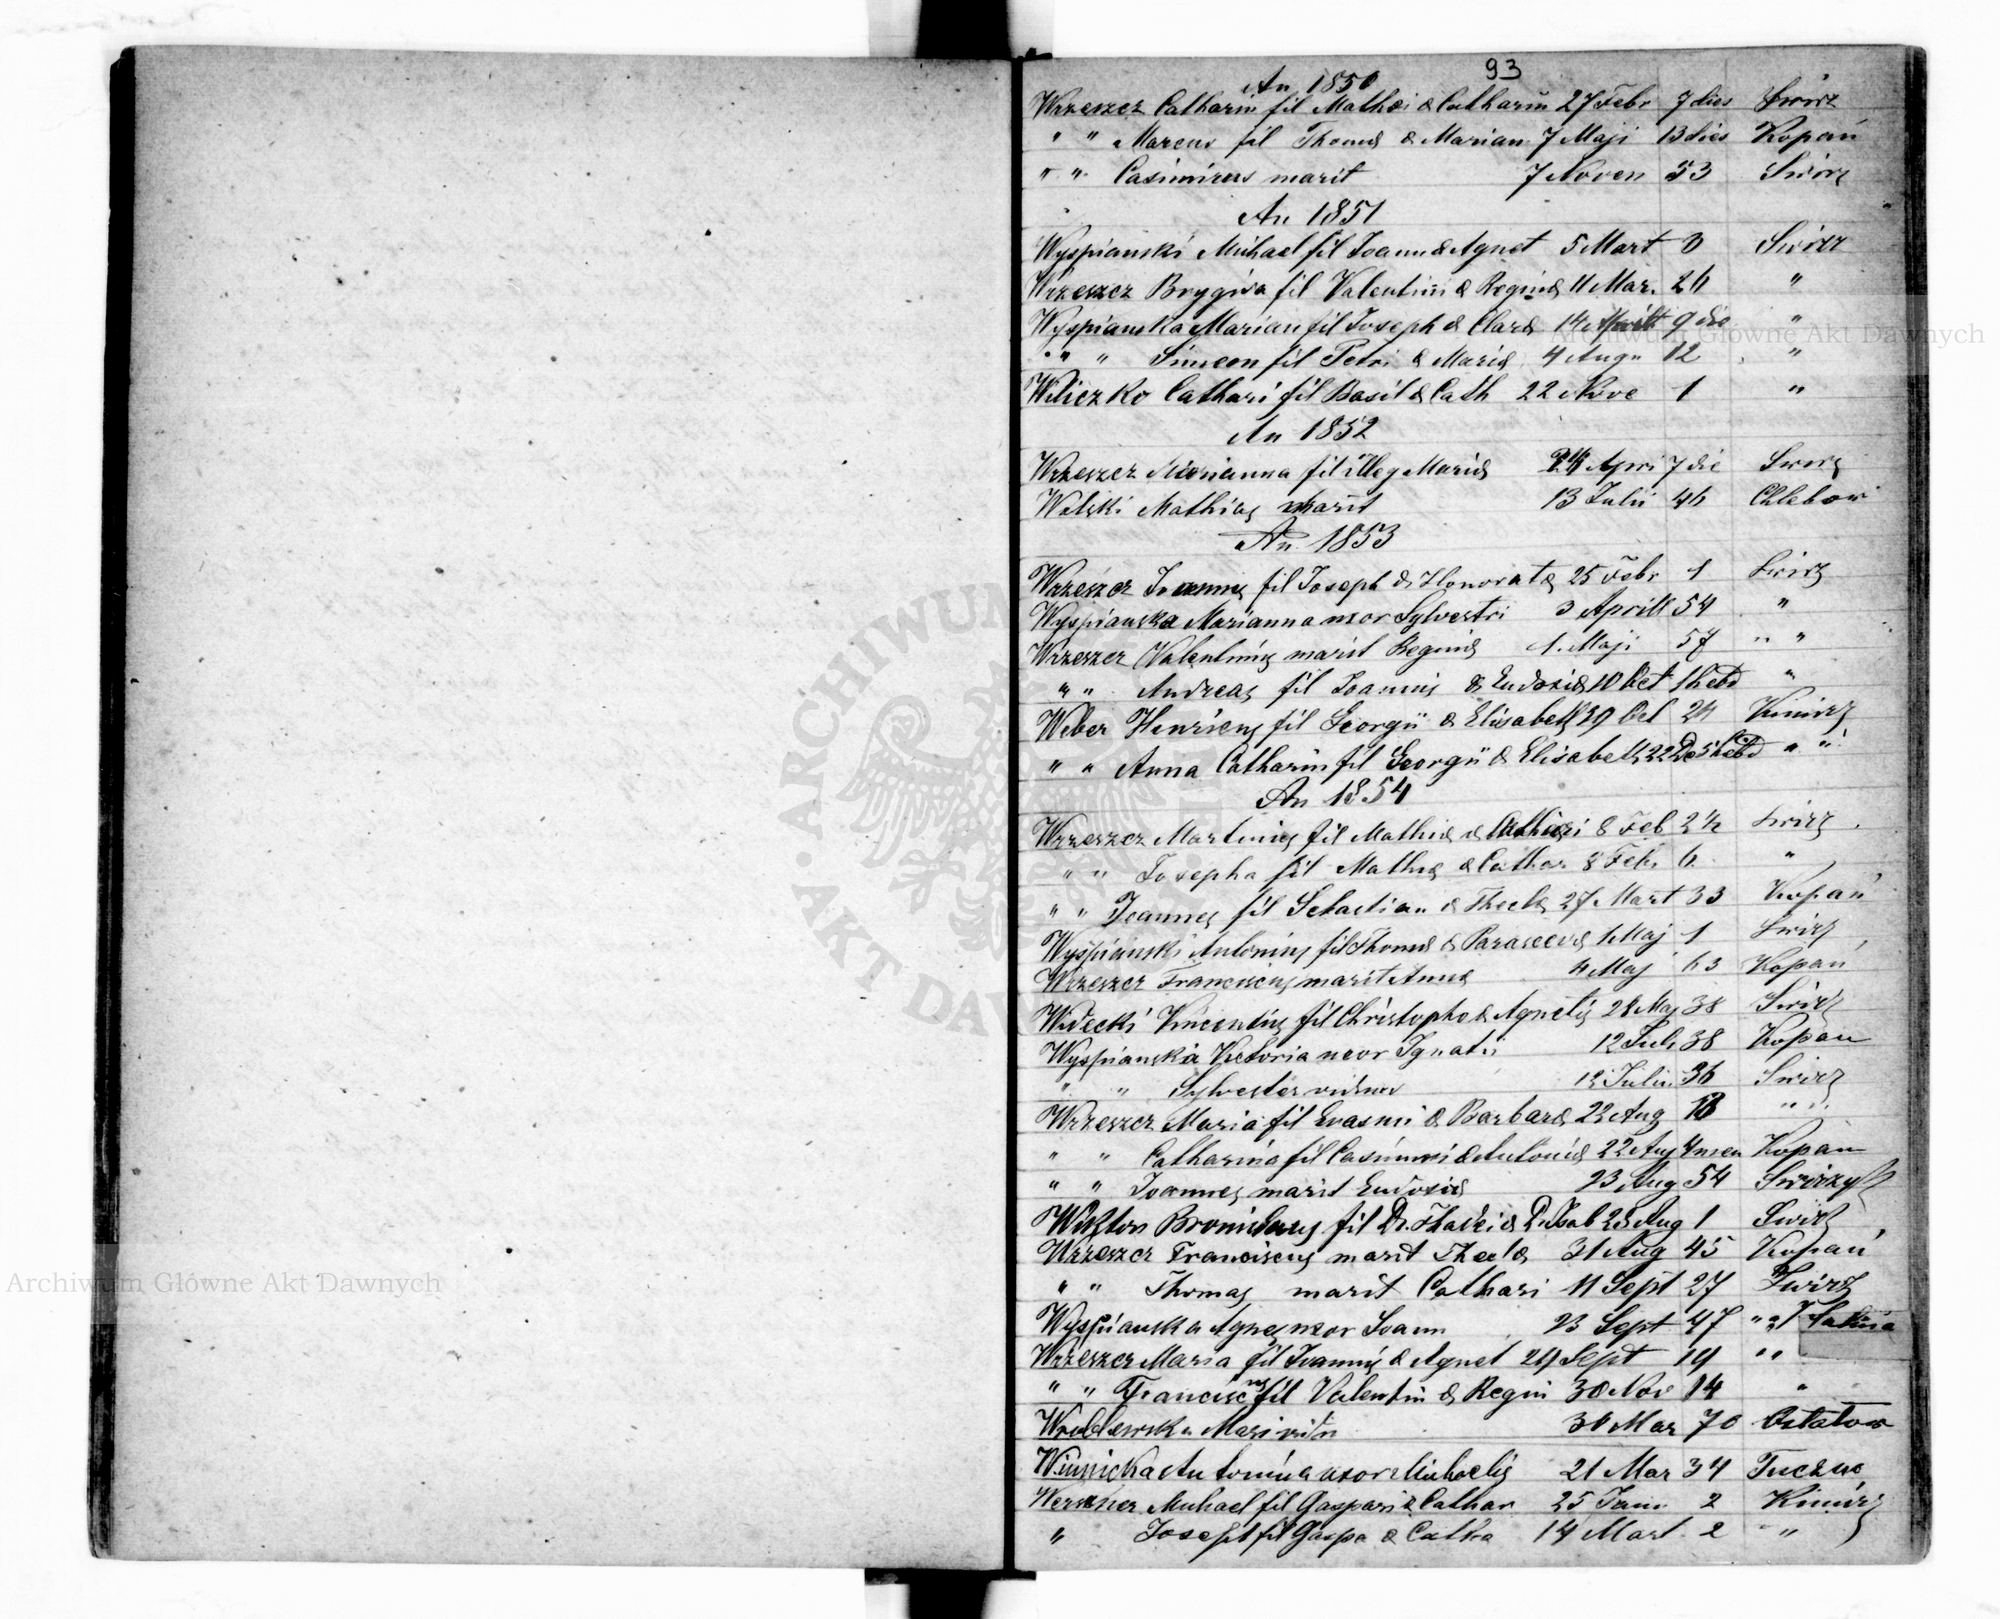 93
An 1850
Wrzeszcz Catharin fil Mathei & Catharin 27 Febr 7 dies Swirz
" " Marcus fil Thomæ & Marian 7 Maji 13 dies Kopań
" " Casimirus marit 7 Noven 53 Swirz
An 1851
Wyspianski Michael fil Joann & Agnet 5 Mart 3 Swirz
Wrzeszcz Brygida fil Valentini & Reginæ 11 Mar. 26 "
Wyspianska Marian fil Joseph & Claræ 14 Aprill 9 die "
" " " Simeon fil Petri & Mariæ 4 Aug 12 "
Wiliczko Cathari fil Basil & Cath 22 Nove 1 "
An 1852
Wrzeszcz Marianna fil illeg Mariæ 24 Apri 7 die Swirz
Walski Mathias marit 13 Julii 46 Chlebow
An 1853
Wrzeszcz Joannes fil Joseph & Honoratæ 25 Febr 1 Swirz
Wyspianska Marianna uxor Sylvestri 3 Aprill 54 "
Wrzeszcz Valentinus marit Reginæ 1. Maji 57 " "
" " Andreas fil Joannis & Eudoxiæ 10 Oct 1 hebd "
Weber Henricus fil Georgii & Elisabeth 29 Oct 2½ Kimirz
" " Anna Catharin fil Georgii & Elisabeth 22 De 5 hebd " "
An 1854
Wrzeszcz Martinus fil Mathiæ & Cathari 8 Feb 2½ Swirz
" " Josepha fil Mathiæ & Cathar 8 Feb 6 "
" " Joannes fil Sebastian & Theclæ 27 Mart 33 Kopań
Wyspianski Antonius fil Thomæ & Parascevæ 1 Maj 1 Swirz
Wrzeszcz Franciscus marit Annæ 4 Maj 63 Kopań
Widecki Vincentius fil Christopho & Agnetis 28 Maj 38 Swirz
Wyspianska Victoria uxor Ignatii 12 Juli 38 Kopań
" " Sylvester viduus 12 Julii 36 Swirz
Wrzeszcz Maria fil Erasmi & Barbaræ 22 Aug " "
" " Catharina fil Casimiri & Antoniæ 22 Aug 4 men Kopan
" " Joannes marit Eudoxiæ 23 Aug 54 Swirz
Wikton Bronislaus fil Dr. Thadei & D. Isab 28 Aug 1 Swirz
Wrzeszcz Franciscus marit Theclæ 31 Aug 45 Kopań
" " Thomas marit Cathari 11 Sept 27 Swirz
Wyspianska Agnes uxor Joann 23 Sept 47 " "
Wrzeszcz Maria fil Joannis & Agnet 29 Sept 19 " "
" " Franciscus fil Valentin & Regin 30 Nov 14 "
Wroblewska Mari vidu 30 Mar 70 Ostatow
Winnicka Antonina uxor Michaelis 21 Mar 34 Tuczne
Werszner Michael fil Gaspari & Cathar 25 Janu 2 Kimirz
" Joseph fil Gaspa & Catha 14 Mart 2 "
Archiwum Główne Akt Dawnych
Archiwum Główne Akt Dawnych
ARCHIWUM
AKT DAW